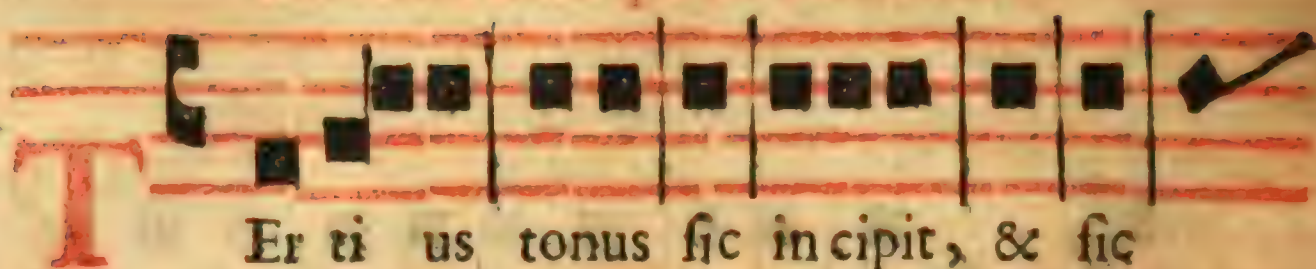 TEr ti us tonus ſic in cipit, & ſic